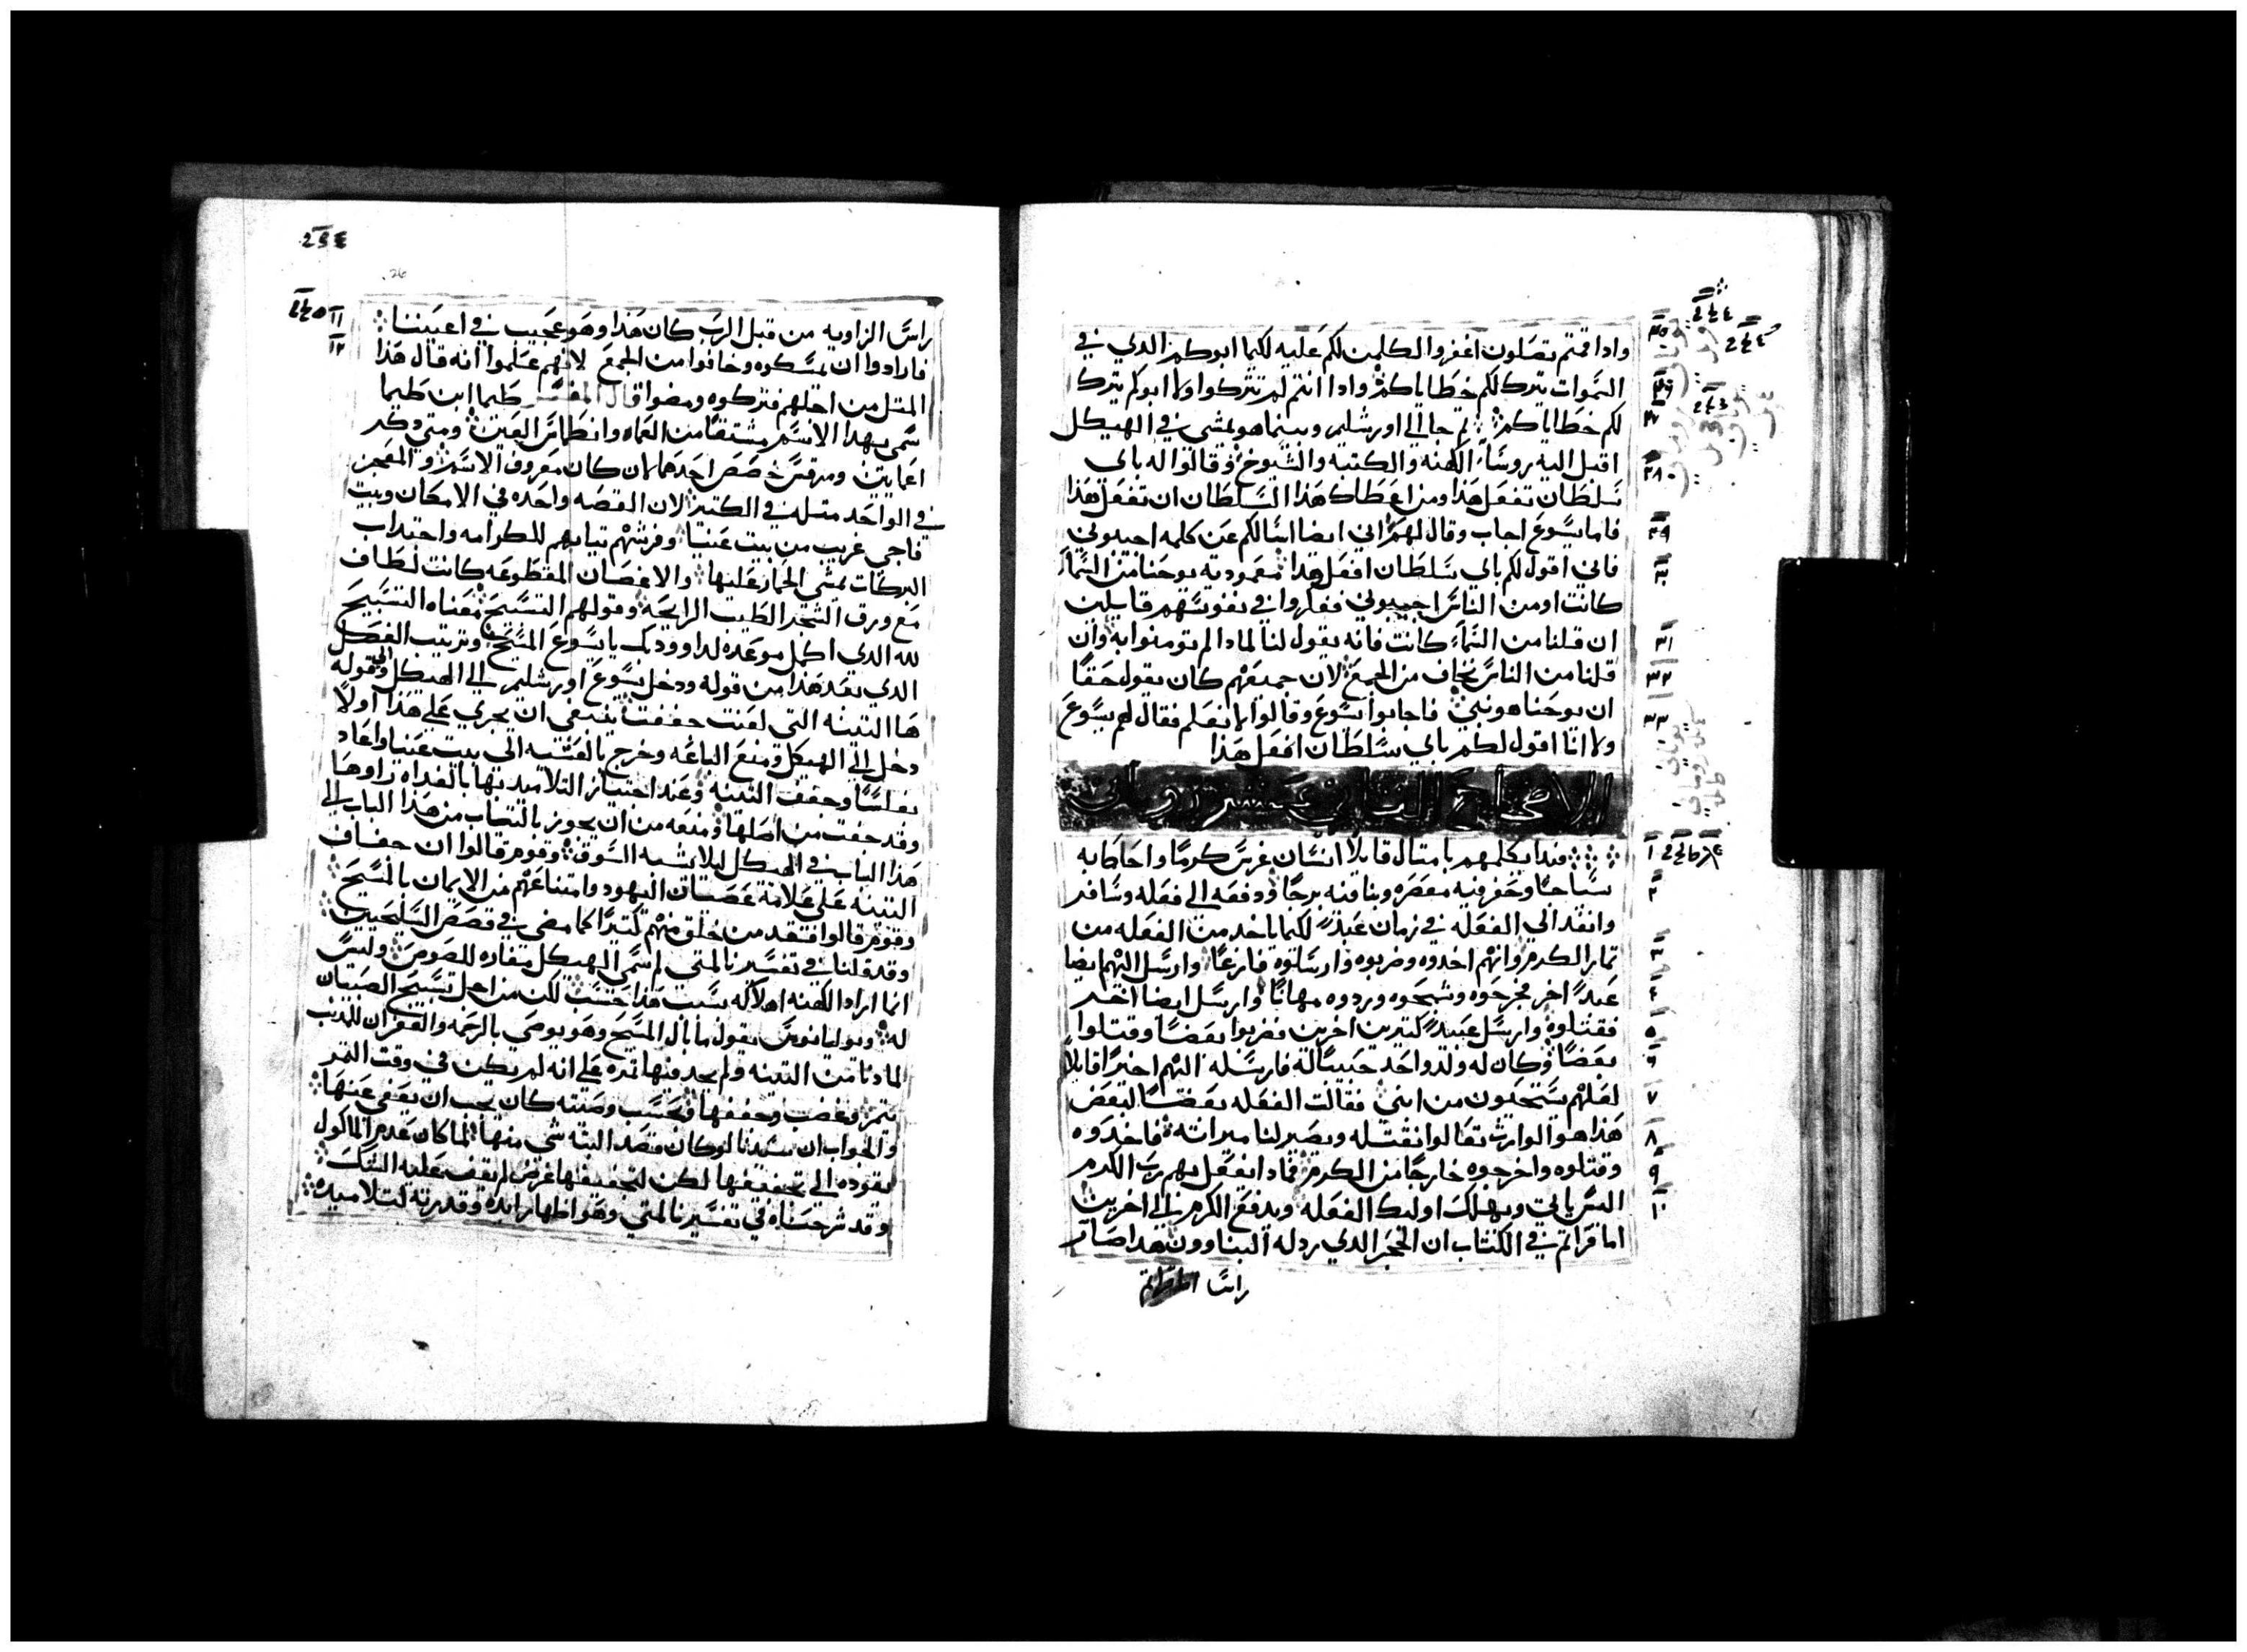 واذا قمتم تصلون اغفروا لكلمن لكم عليه لكيما ابوكم الذي في
السموات يترك لكم خطاياكم واذا انتم لم تتركوا ولا ابوكم يترك
لكم خطاياكم ثم جا الي اورشليم وبينما هو يمشي في الهيكل
اقبل اليه روسا الكهنه والكتبه والشيوخ وقالوا له باي
سلطان تفعل هذا ومن اعطاك هذا السلطان ان تفعل هذا
فاما يسوع اجاب وقال لهم اني ايضا اسالكم عن كلمه اجيبوني
فاني اقول لكم باي سلطان افعل هذا معموديه يوحنا من السما
كانت او من الناس اجيبوني ففكروا في نفوسهم قايلين
ان قلنا من السما كانت فانه يقول لنا لماذا لم تومنوا به وان
قلنا من الناس نخاف من الجمع لان جميعهم كان يقول حقا
ان يوحنا هو نبي فاجابوا يسوع وقالوا لا نعلم فقال لهم يسوع
ولا انا اقول لكم باي سلطان افعل هذا
الاصحاح الثاني عشر روماني
فبدا يكلمهم بامثال قايلا انسان غرس كرما واحاط به
سياجا وحفر فيه معصره وبنا فيه برجا ودفعه الي فعله وسافر
وانفد الي الفعله في زمان عبد لكيما ياخد من الفعله من
ثمار الكرم وانهم اخدوه وضربوه وارسلوه فارغا وارسل اليهم ايضا
عبد اخر فجرحوه وشجوه وردوه مهانا وارسل ايضا اخر
فقتلوه وارسل عبيد كثيرين اخرين فضربوا بعضا وقتلوا
بعضا وكان له ولد واحد حبيبا له فارسله اليهم اخيرا قايلا
لعلهم يستحيون من ابني فقالت الفعله بعضا لبعض
هذا هو الوارث تعالوا نقتله ويصير لنا ميراثه فاخدوه
وقتلوه واخرجوه خارجا من الكرم فماذا يفعل بهم رب الكرم
اليس ياتي ويهلك اوليك الفعله ويدفع الكرم الي اخرين
اما قراتم في الكتاب ان الحجر الدي ردله البناوون هدا صار
راسا
راس الزاويه من قبل الرب كان هذا وهو عجيب في اعيننا
فارادوا ان يمسكوه وخافوا من الجمع لانهم علموا انه قال هذا
المثل من اجلهم فتركوه ومضوا قال المفسر طيما ابن طيما
سمي بهدا الاسم مشتقا من العماه وانطماس العين ومتي دكر
اعمايين ومرقس خصص احدهما لان كان معروف الاسم والمعجز
في الواحد مثله في الكثير لان القصه واحده في الامكان وبيت
فاجي غريب من بيت عنيا وفرشهم ثيابهم للكرامه واجتداب
البركات بمشي الحمار عليها والاغصان المقطوعه كانت لطاف
مع ورق الشجر الطيب الرايحه وقولهم التسبيح معناه التسبيح
لله الدي اكمل موعده لداوود بك يا يسوع المسيح وترتيب الفصل
الدي بعد هذا من قوله ودخل يسوع اورشليم الي الهيكل والي قوله
ها التينه التي لعنت جففت ينبغي ان يجري علي هذا اولا
دخل الي الهيكل ومنع الباعه وخرج بالعشيه الي بيت عنيا واعاد
بغلسا وجفف التينه وعند اجتياز التلاميد بها بالغداه راوها
وقد جفت من اصلها ومنعه من ان يجوز بالثياب من هذا الباب الي
هذا الباب في الهيكل ليلا يشبه السوق وقوم قالوا ان جفاف
التينه علي علامة عصيان اليهود وامتناعهم من الايمان بالمسيح
وقوم قالوا
وقد قلنا في تفسيرنا لمتي لم سمي الهيكل مغاره للصوص وليس
انما اراد الكهنه اهلاكه بسبب هذا حسب لكن من اجل تسبيح الصبيان
له ويوليانوس يقول ما بال المسيح وهو يوصي بالرحمه والغفران للمدنب
لما دنا من التينه ولم يجد فيها ثمره علي انه لم يكن في وقت الثمر
يثمر بغضب وجففها وبحسب وصيته كان يجب ان يعفي عنها
والجواب ان سيدنا لو كان قصد البته شي منها لما كان عدم الماكول
يقوده الي تجفيفها لكن لتجفيفها غرض لم يقف عليه
وقد شرحناه في تفسيرنا لمتي وهو اظهار ايده وقدرته لتلاميده